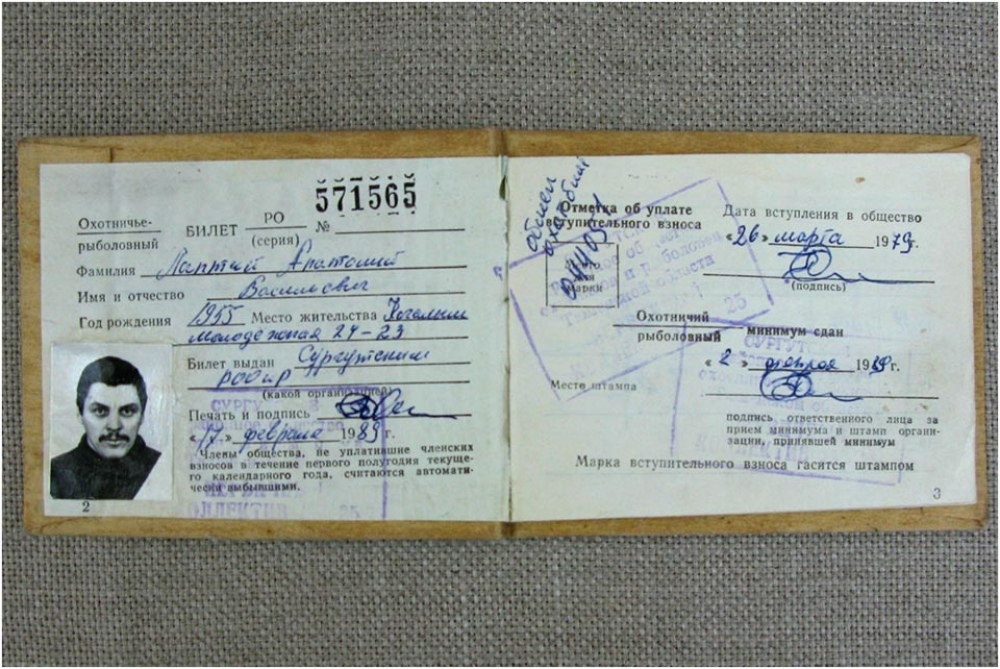 571565
Охотничье-
рыболовный
БИЛЕТ РО №
(серия)
Фамилия Анатолий
Имя и отчество Васильевич
Год рождения 1955 Место жительства Когалым
Молодежная 24-23
Билет выдан Сургутским
РООиР
(какой организацией)
Печать и подпись
«17» февраля 1989 г.
Члены общества, не уплатившие членских
взносов в течение первого полугодия текуще-
го календарного года, считаются автомати-
чески выбывшими.
2
КОЛЛЕКТИВ 25
обмен
Отметка об уплате
вступительного взноса
Место
для
марки
Дата вступления в общество
«26» марта 1979 г.
(подпись)
Охотничий
рыболовный минимум сдан
«2» февраля 1989 г.
Место штампа
подпись ответственного лица за
прием минимума и штамп органи-
зации, принявшей минимум
Марка вступительного взноса гасится штампом
3